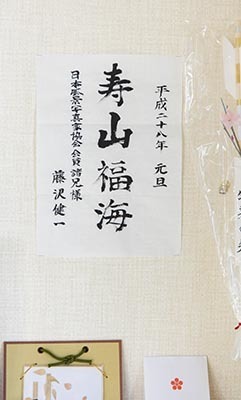 平成二十八年 元旦
寿山福海
日本風景写真家協会会員諸兄様
藤沢健一